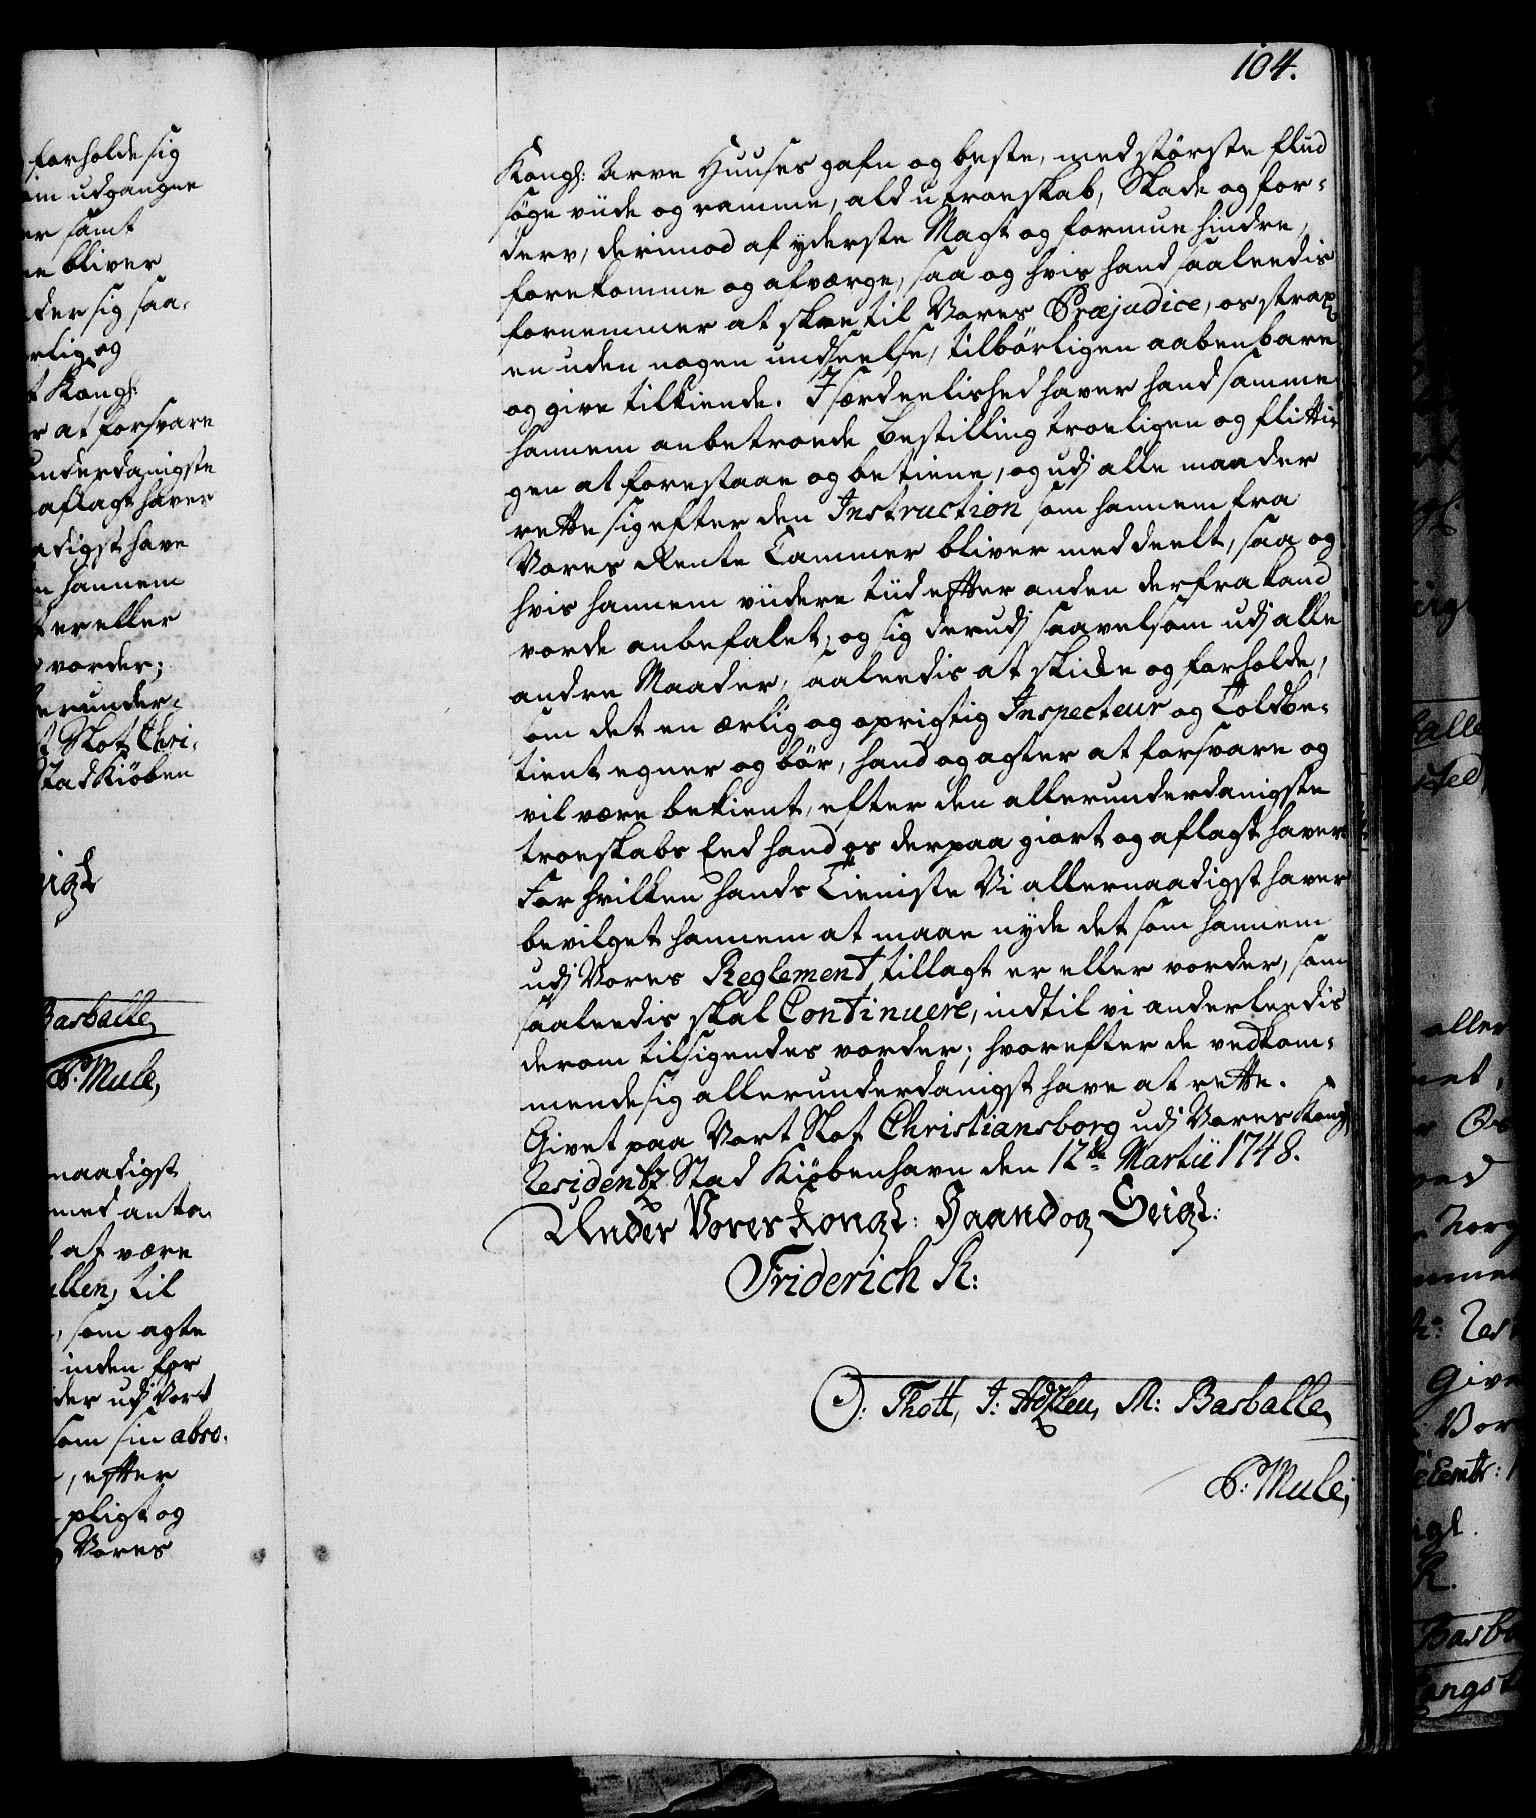 104.
Kongl: Arve Huuses gafn og beste, med störste fliid
söge viide og ramme, ald utroeskab, Skade og for-
derv, derimod af yderste Magt og formue hindre,
forekomme og afværge, saa og hvis hand saaleedis
fornemmer at skee til Vores Præjudice, os strax
en uden nogen undseelse, tilbörligen aabenbare
og give tilkiende. Isærdeelished haver hand samme
hannem anbetroede bestilling troeligen og flittig
gen at forestaae og betiene, og udj alle maader
rette sig efter den Instruction som hannem fra
Vores Rente Cammer bliver meddeelt, saa og
hvis hannem viidere tiid efter anden derfra kand
vorde anbefalet; og sig derudj saavelsom udj alle
andre Maader, saaleedis at skicke og forholde,
som det en ærlig og oprigtig Inspecteur og Toldbe-
tient egner og bör, hand og agter at forsvare og
vil være bekient, efter den allerunderdanigste
troeskabs Eed hand os derpaa giort og aflagt haver
For hvilken hands Tieniste Vi allernaadigst haver
bevilget hannem at maae nyde det som hannem
udj Vores Reglement tillagt er eller vorder, som
saaleedis skal Continuere, indtil vi anderleedis
derom tilsigendes vorder; hvorefter de vedkom-
mende sig allerunderdanigst have at rette.
Givet paa Vort Slot Christiansborg udj Vores Kongl
Residentz Stad Kiöbenhavn den 12te Martii 1748.
Under Vores Kongl: Haand og Seigl:
Friderich R:
O: Thott, J: Holten, M: Basballe,
P: Mule,
forholde sig
udgangne
samt
bliver
sig saa-
og
Kongl:
at forsvare
underdanigste
aflagt haver
have
hannem
er eller
vorder;
Slot Chri-
Stad Kiöben
Basballe,
P: Mule,
naadigst
med anta
at være
til
som agte
inden for
udj Vort
som sin abso-
, efter
pligt og
Vores